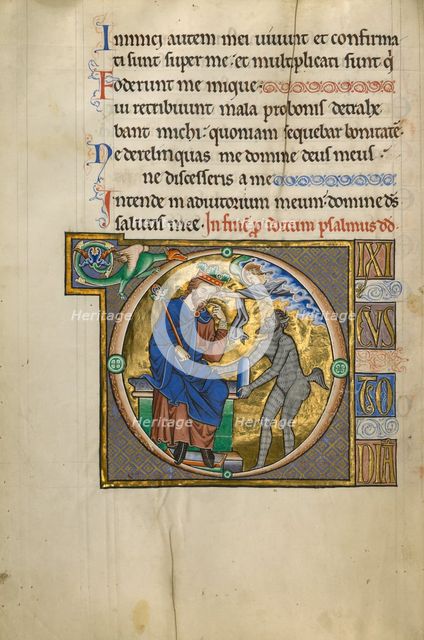 Inimici autem mei uiuunt et confirma
ti sunt super me et multiplicati sunt q̄
Foderunt me inique
ui retribuunt mala pro bonis detrahe
bant michi quoniam sequebar bonitatē
Ne derelinquas me domine deus meus
ne discesseris a me
Intende in adiutorium meum domine d̄s
salutis mee In finē p̄ iditum psalmus dd
D IXI
CUS
TO
DIĀ
Heritage Heritage
Heritage Heritage
Heritage Heritage